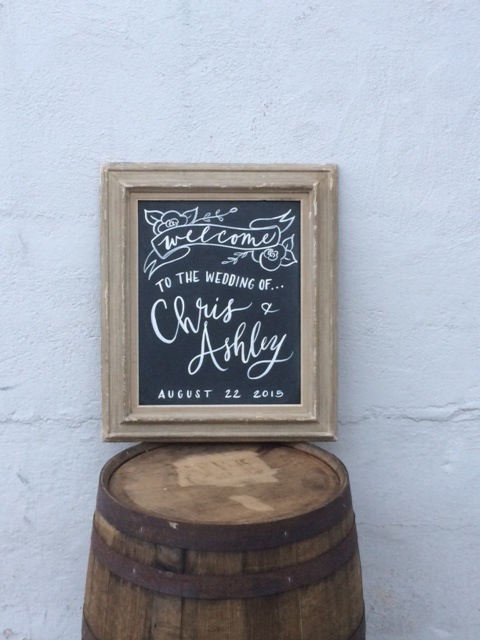 welcome
TO THE WEDDING OF...
Chris &
Ashley
AUGUST 22 2015